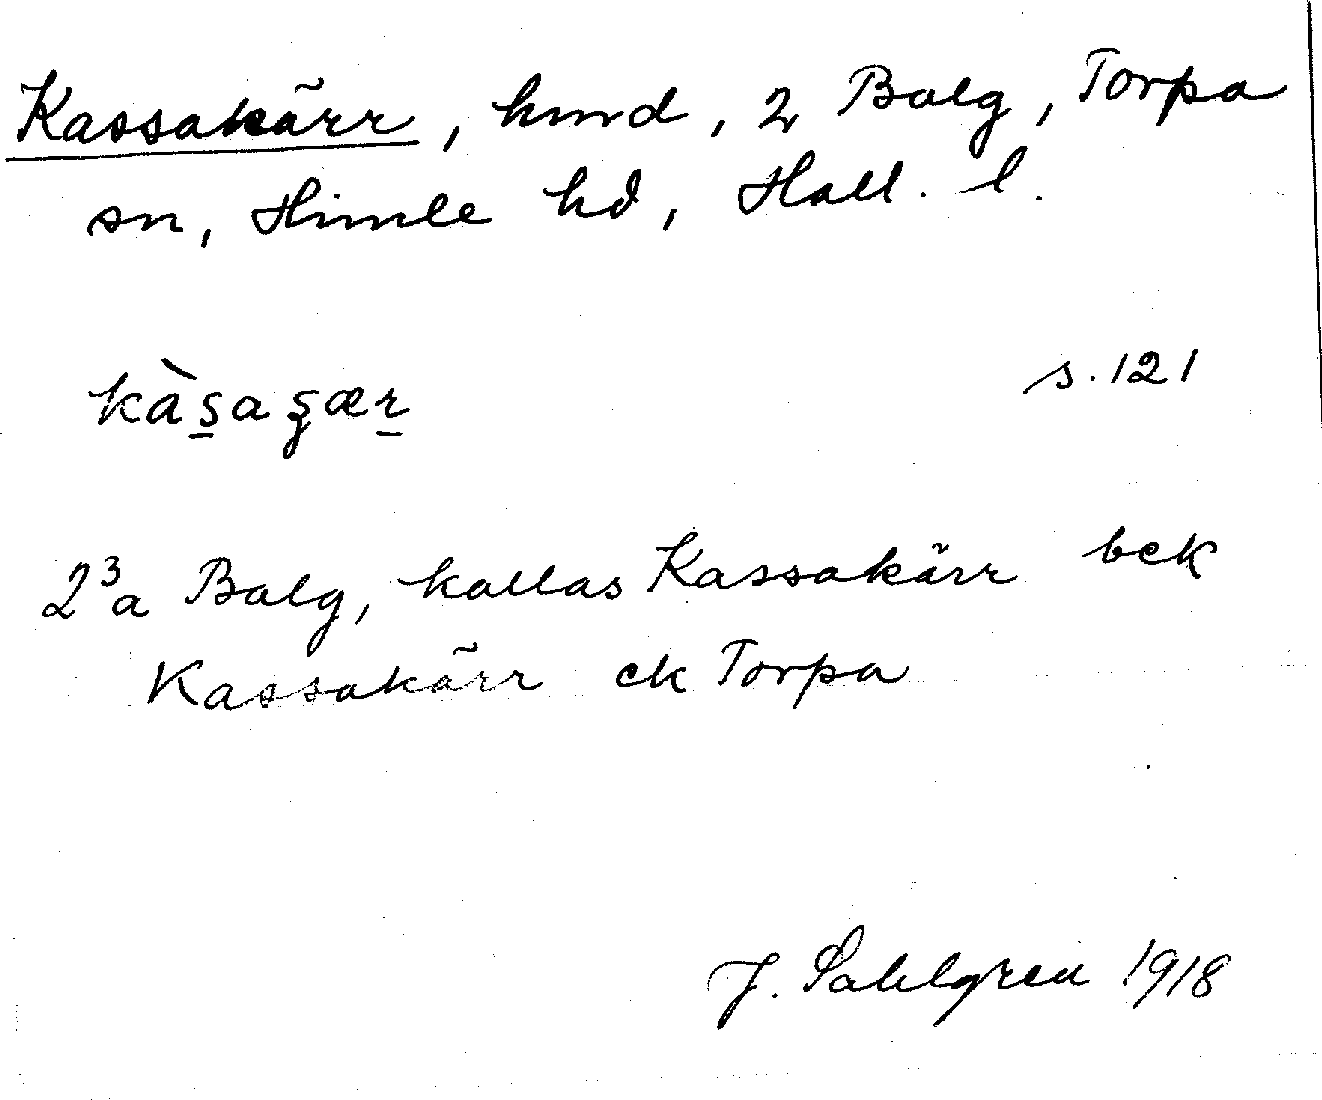 Kassakärr, hmd, 2 Balg, Torpa
sn, Himle hd, Hall. l.
kàs̱aʂæṟ
s. 121
2³a Balg, kallas Kassakärr bck
Kassakärr ck Torpa
J. Sahlgren 1918